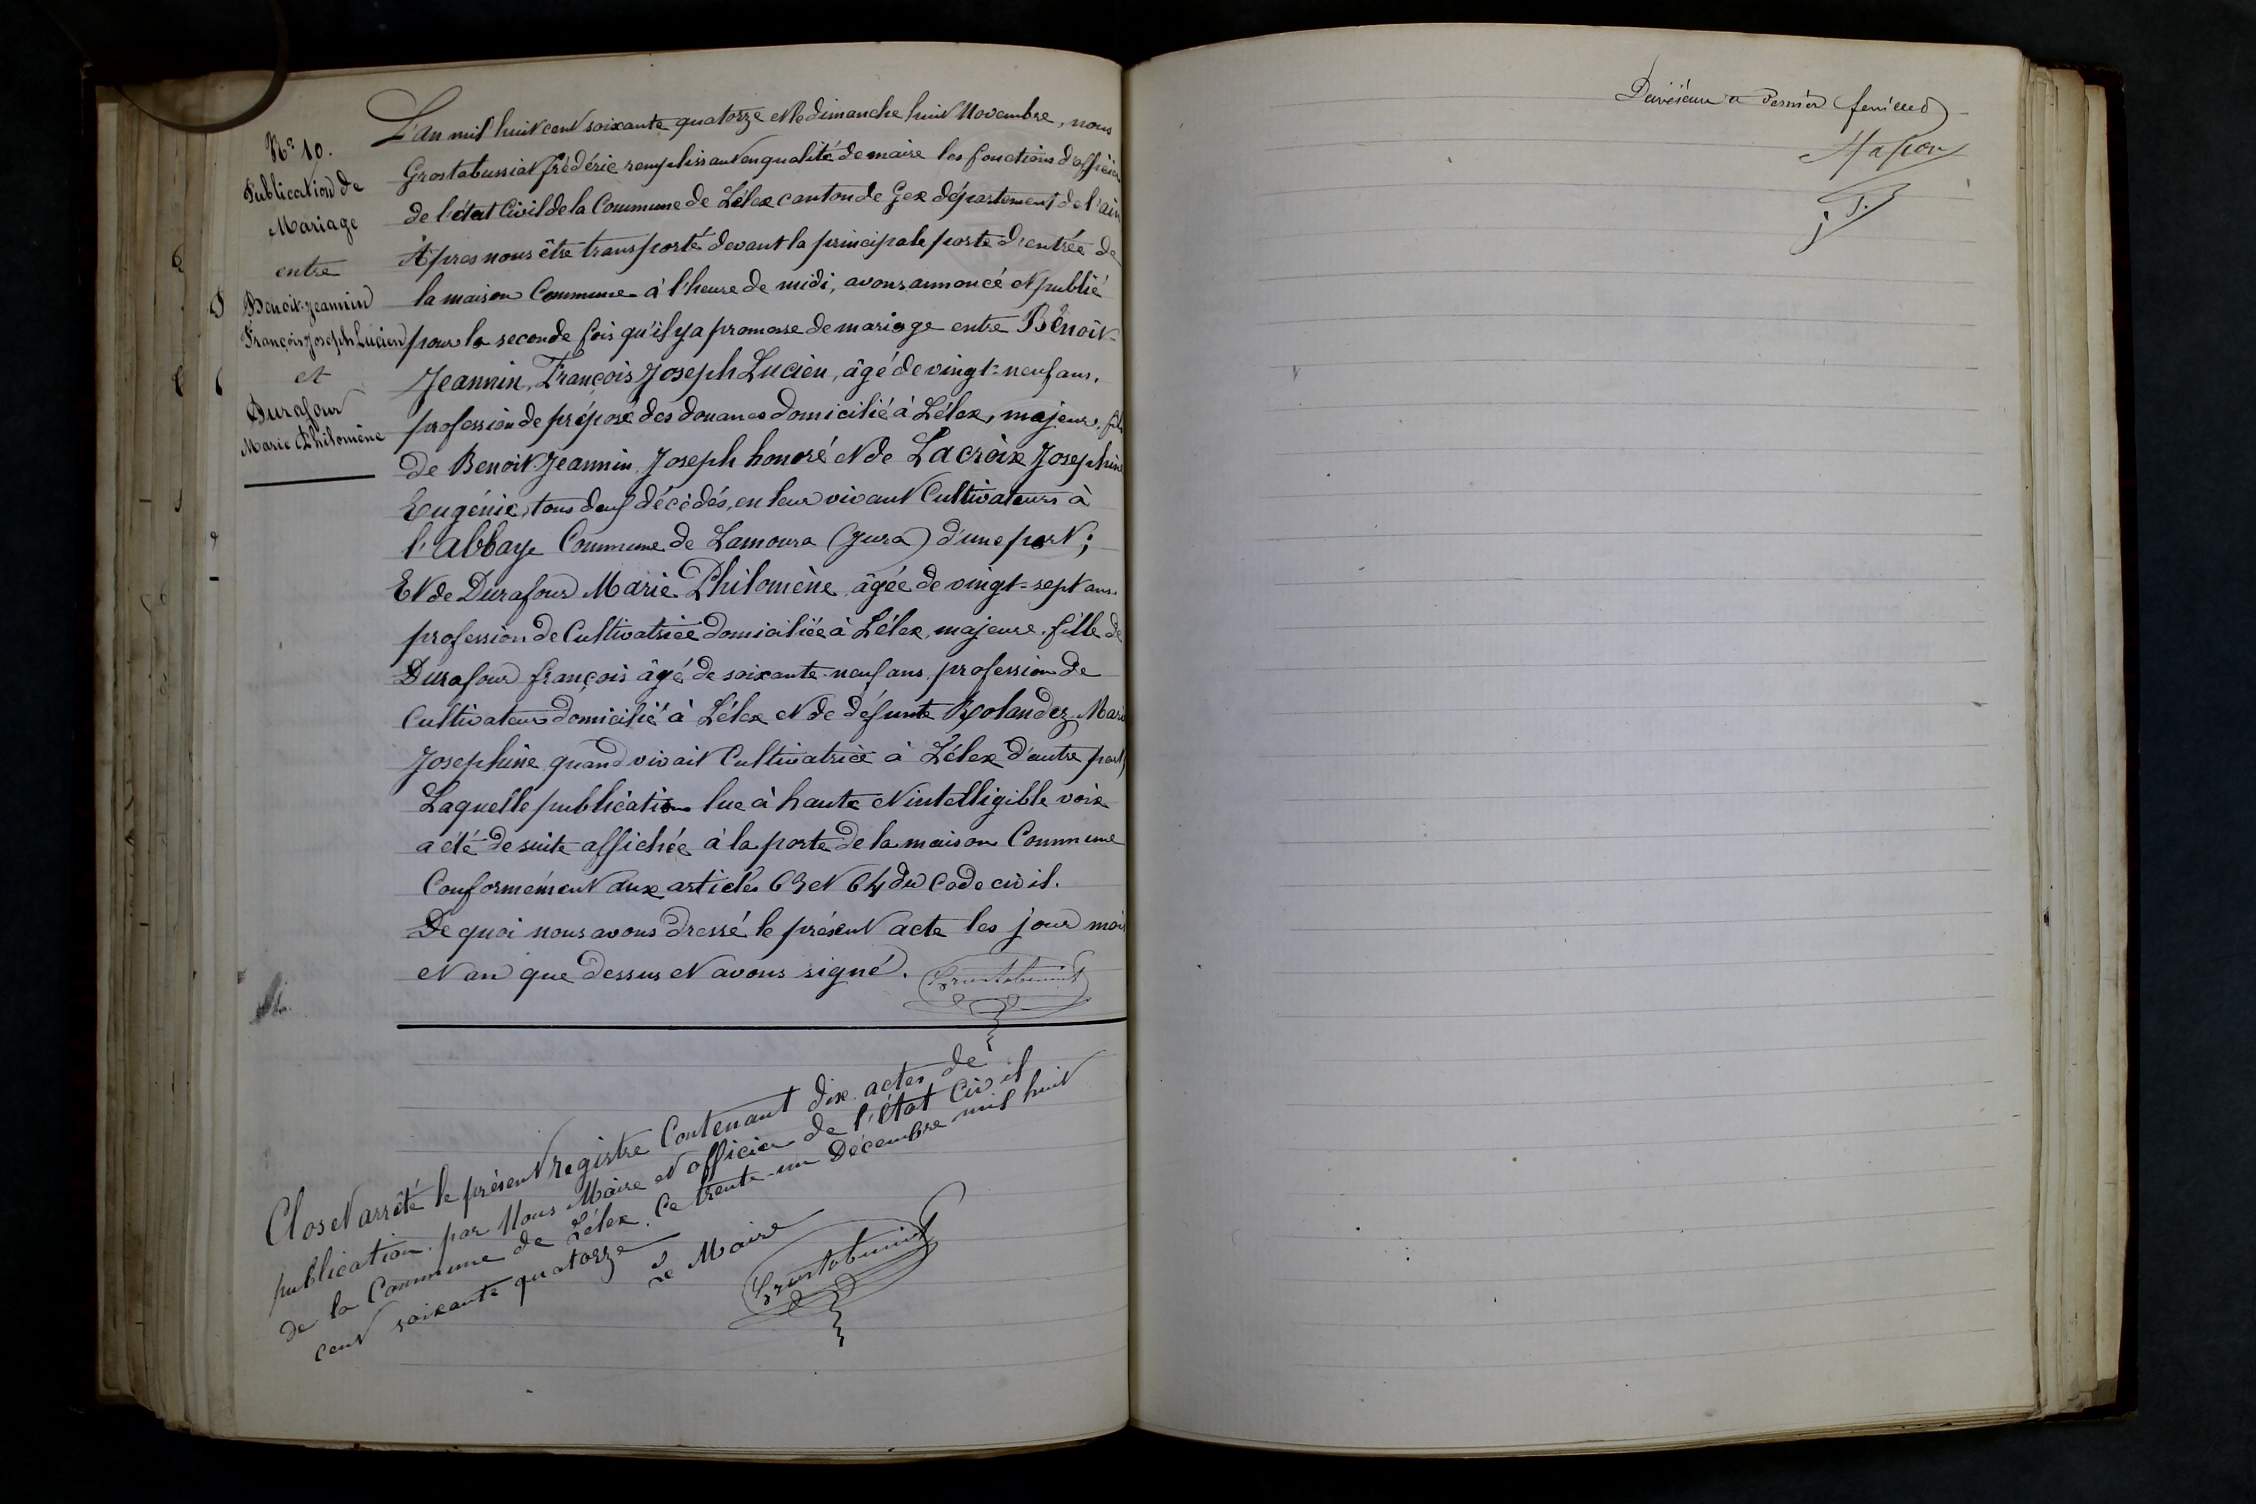 Nº 10.
Publication de
Mariage
entre
Benoit-Jeannin
François Joseph Lucien
et
Durafour
Marie Philomène
L'an mil huit cent soixante quatorze et le dimanche huit Novembre, nous
Grostabussiat frédéric remplissant en qualité de maire les fonctions d'officier
de l'état Civil de la Commune de Lélex canton de Gex département de l'ain
Après nous être transporté devant la principale porte d'entrée de
la maison Commune à l'heure de midi, avons annoncé et publié
pour la seconde fois qu'il y a promesse de mariage entre Benoit-
Jeannin, François Joseph Lucien, âgé de vingt-neuf ans,
profession de préposé des douanes domicilié à Lélex, majeur, fils
de Benoit-Jeannin Joseph honoré et de Lacroix Josephine
Eugénie, tous deux décédés, en leur vivant Cultivateurs à
l'abbaye Commune de Lamoura (Jura) d'une part;
Et de Durafour Marie Philomène âgée de vingt-sept ans.
profession de Cultivatrice domiciliée à Lélex, majeure, fille de
Durafour françois âgé de soixante-neuf ans, profession de
Cultivateur domicilié à Lélex et de défunte Rolandez Marie
Josephine quand vivait Cultivatrice à Lélex d'autre part,
Laquelle publication lue à haute et intelligible voix
a été de suite affichée à la porte de la maison Commune
Conformément aux articles 63 et 64 du Code civil.
De quoi nous avons dressé le présent acte les jour mois
et an que dessus et avons signé.
Grostabussiat
Clos et arrêté le présent registre Contenant dix actes de
publication par Nous Maire et officier de l'état Civil
de la Commune de Lélex. Ce trente-un Décembre mil huit
cent soixante quatorze
Le Maire
Grostabussiat